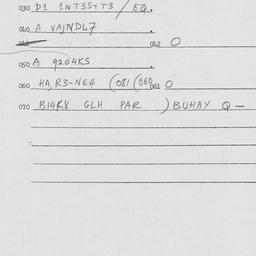 030 D1 1NT3S4T3 / EQ.
040 A VAJNDL7 .
042 O
050 A 9204KS .
060 HA, R3-NE4 (081 (060 061 O
070 B14K8 GLH PAR ) BUHAY Q —